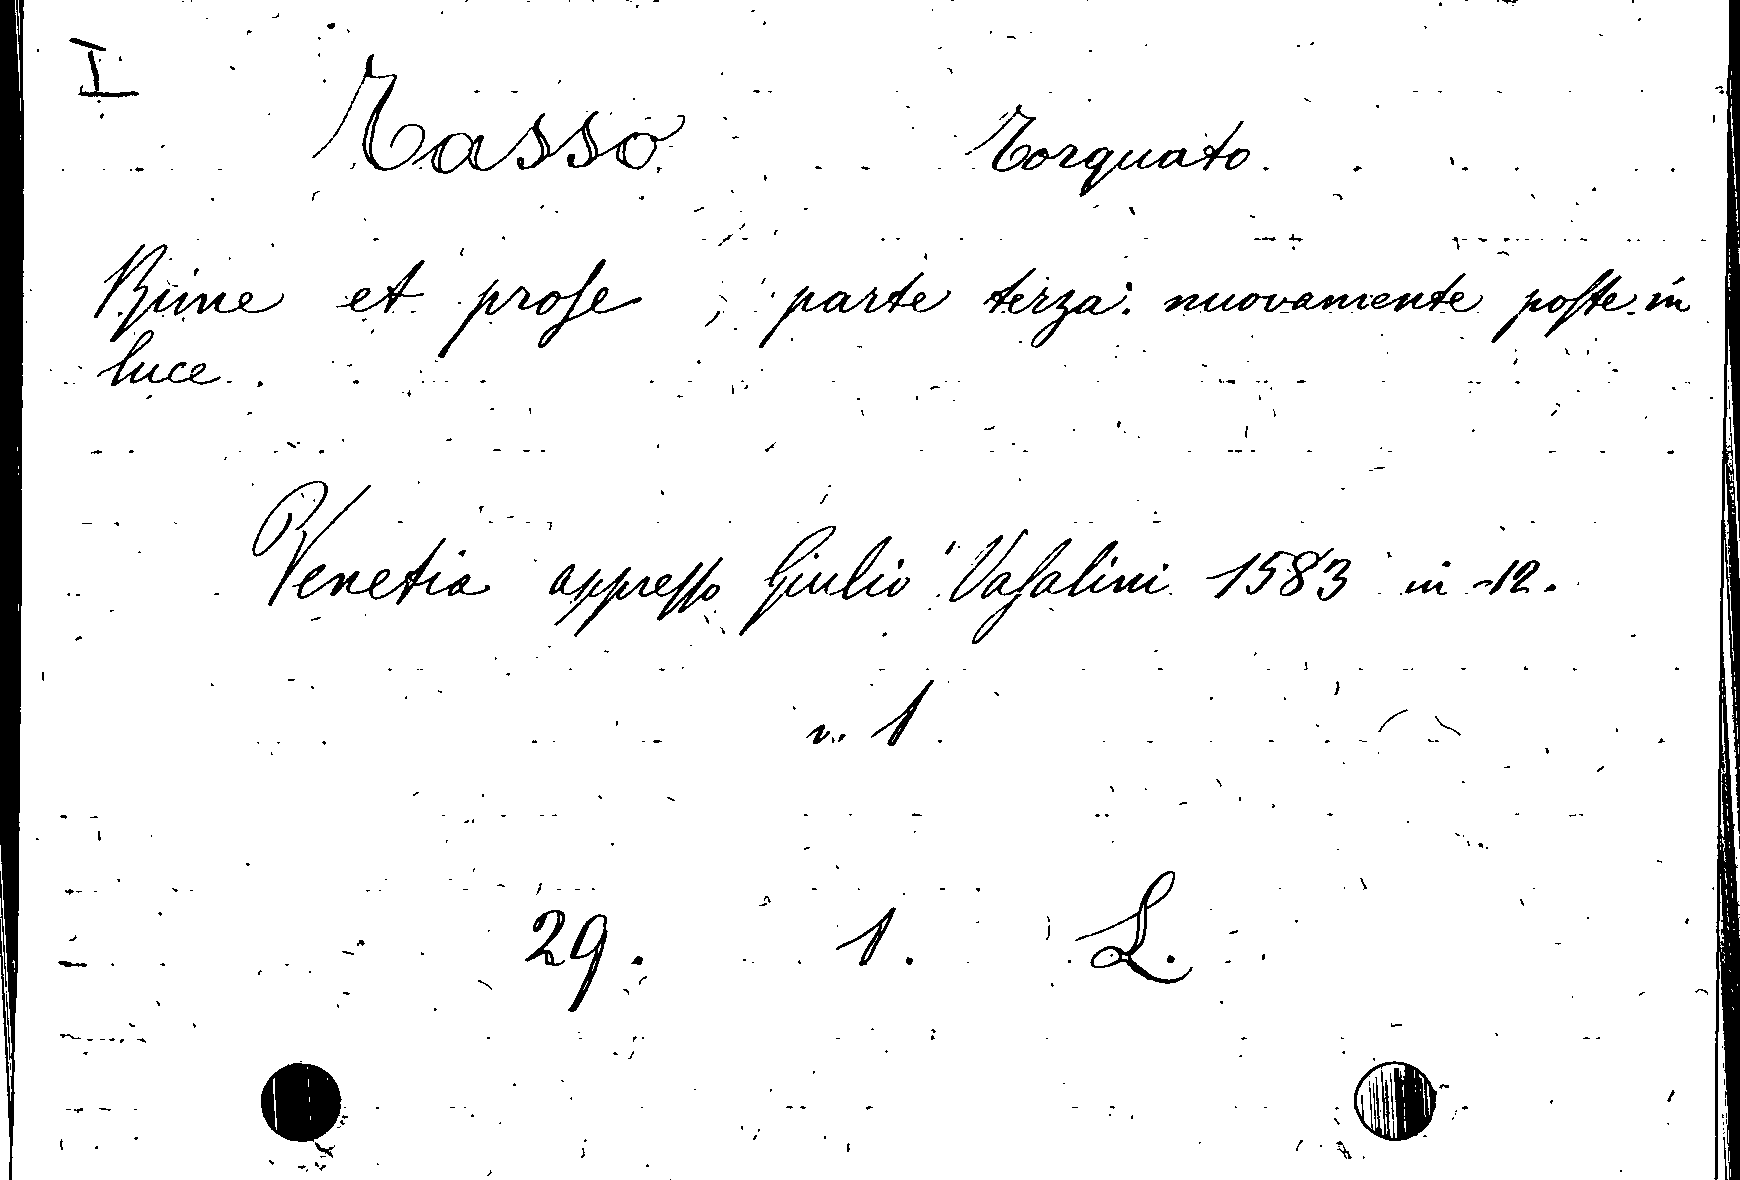 I
Tasso Torquato.
Rime et prose, parte terza: nuovamente poste in
luce.
Venetia appresso Giulio Vasalini 1583 in-12.
v. 1
29. 1. L.